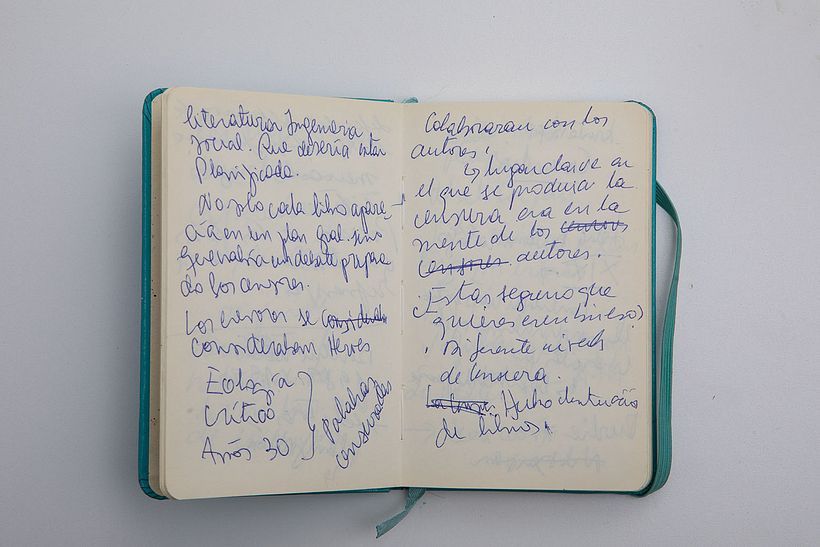 literatura Ingeniería
social. Que debería estar
Planificada.
No solo cada libro apare-
cía en un plan gral. sino
generaba un debate prepara
do los censores.
Los censores se considerab
consideraban Heroes
Ecología
Crítico
Años 30
Palabras
censuradas
Colaboraran con los
autores.
↳ lugar clave en
el que se producía la
censura era en la
mente de los censores
censores autores.
¿Estas seguro que
quieres escribir eso?
. Diferente nivels
de censura.
Hubo destrucción
de libros.